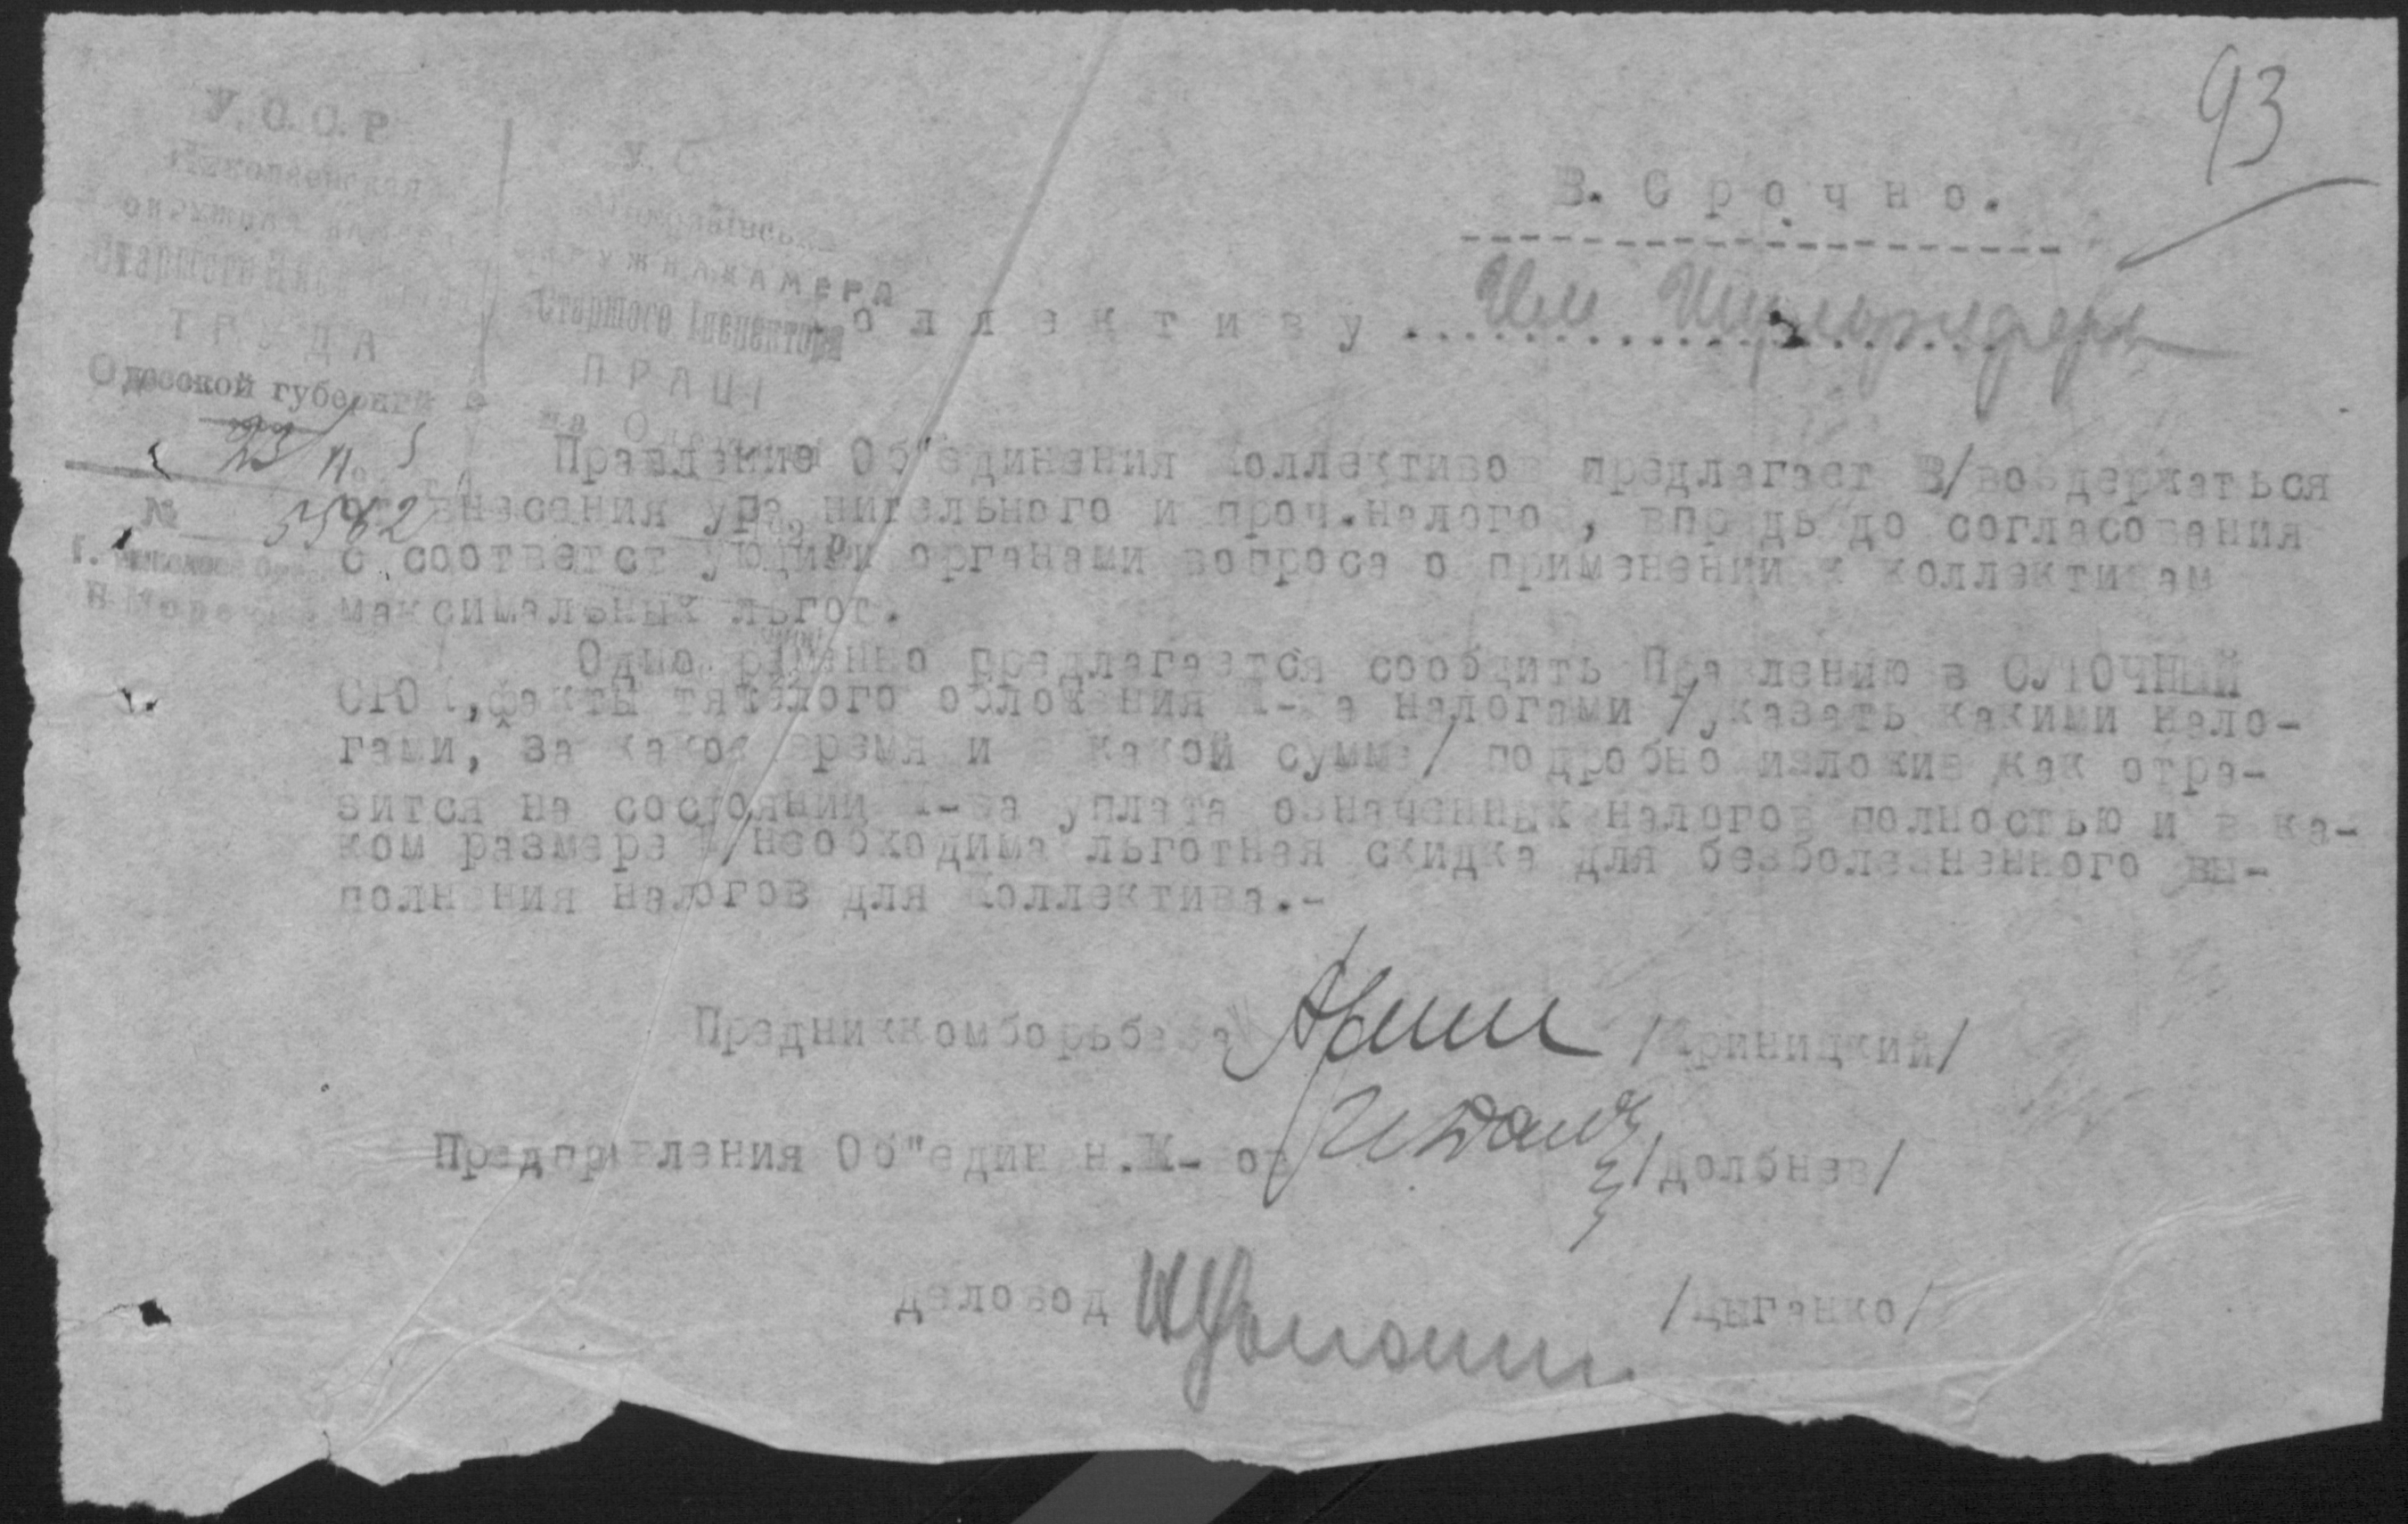 93
В. Срочно.
У.С.С.Р
Николаевская
окружная камера
Старшого Инспектора
ТРУДА
Одесской губернии
23/
№ 5582
У. С.
Миколаївська
окружна камера
Старшого Інспектора
ПРАЦІ
на Одещині
Коллективу Им
Правление Об"единения Коллективов предлагает В/воздержаться
от внесения уравнительного и проч.налогов, впредь до согласования
с соответствующими органами вопроса о применении к коллективам
максимальных льгот.
Одновременно предлагается сообщить Правлению в СУТОЧНЫЙ
СРОК, факты тяжелого обложения К-ва налогами /указать какими нало-
гами, за какое время и в какой сумме/ подробно изложив как отра-
зится на состоянии К-ва уплата означенных налогов полностью и в ка-
ком размере В/необходима льготная скидка для безболезненного вы-
полнения налогов для Коллектива.-
Предниккомборьбеза /Криницкий/
Предправления Об"единен.К-вов /Долбнев/
Деловод /Цыганко/